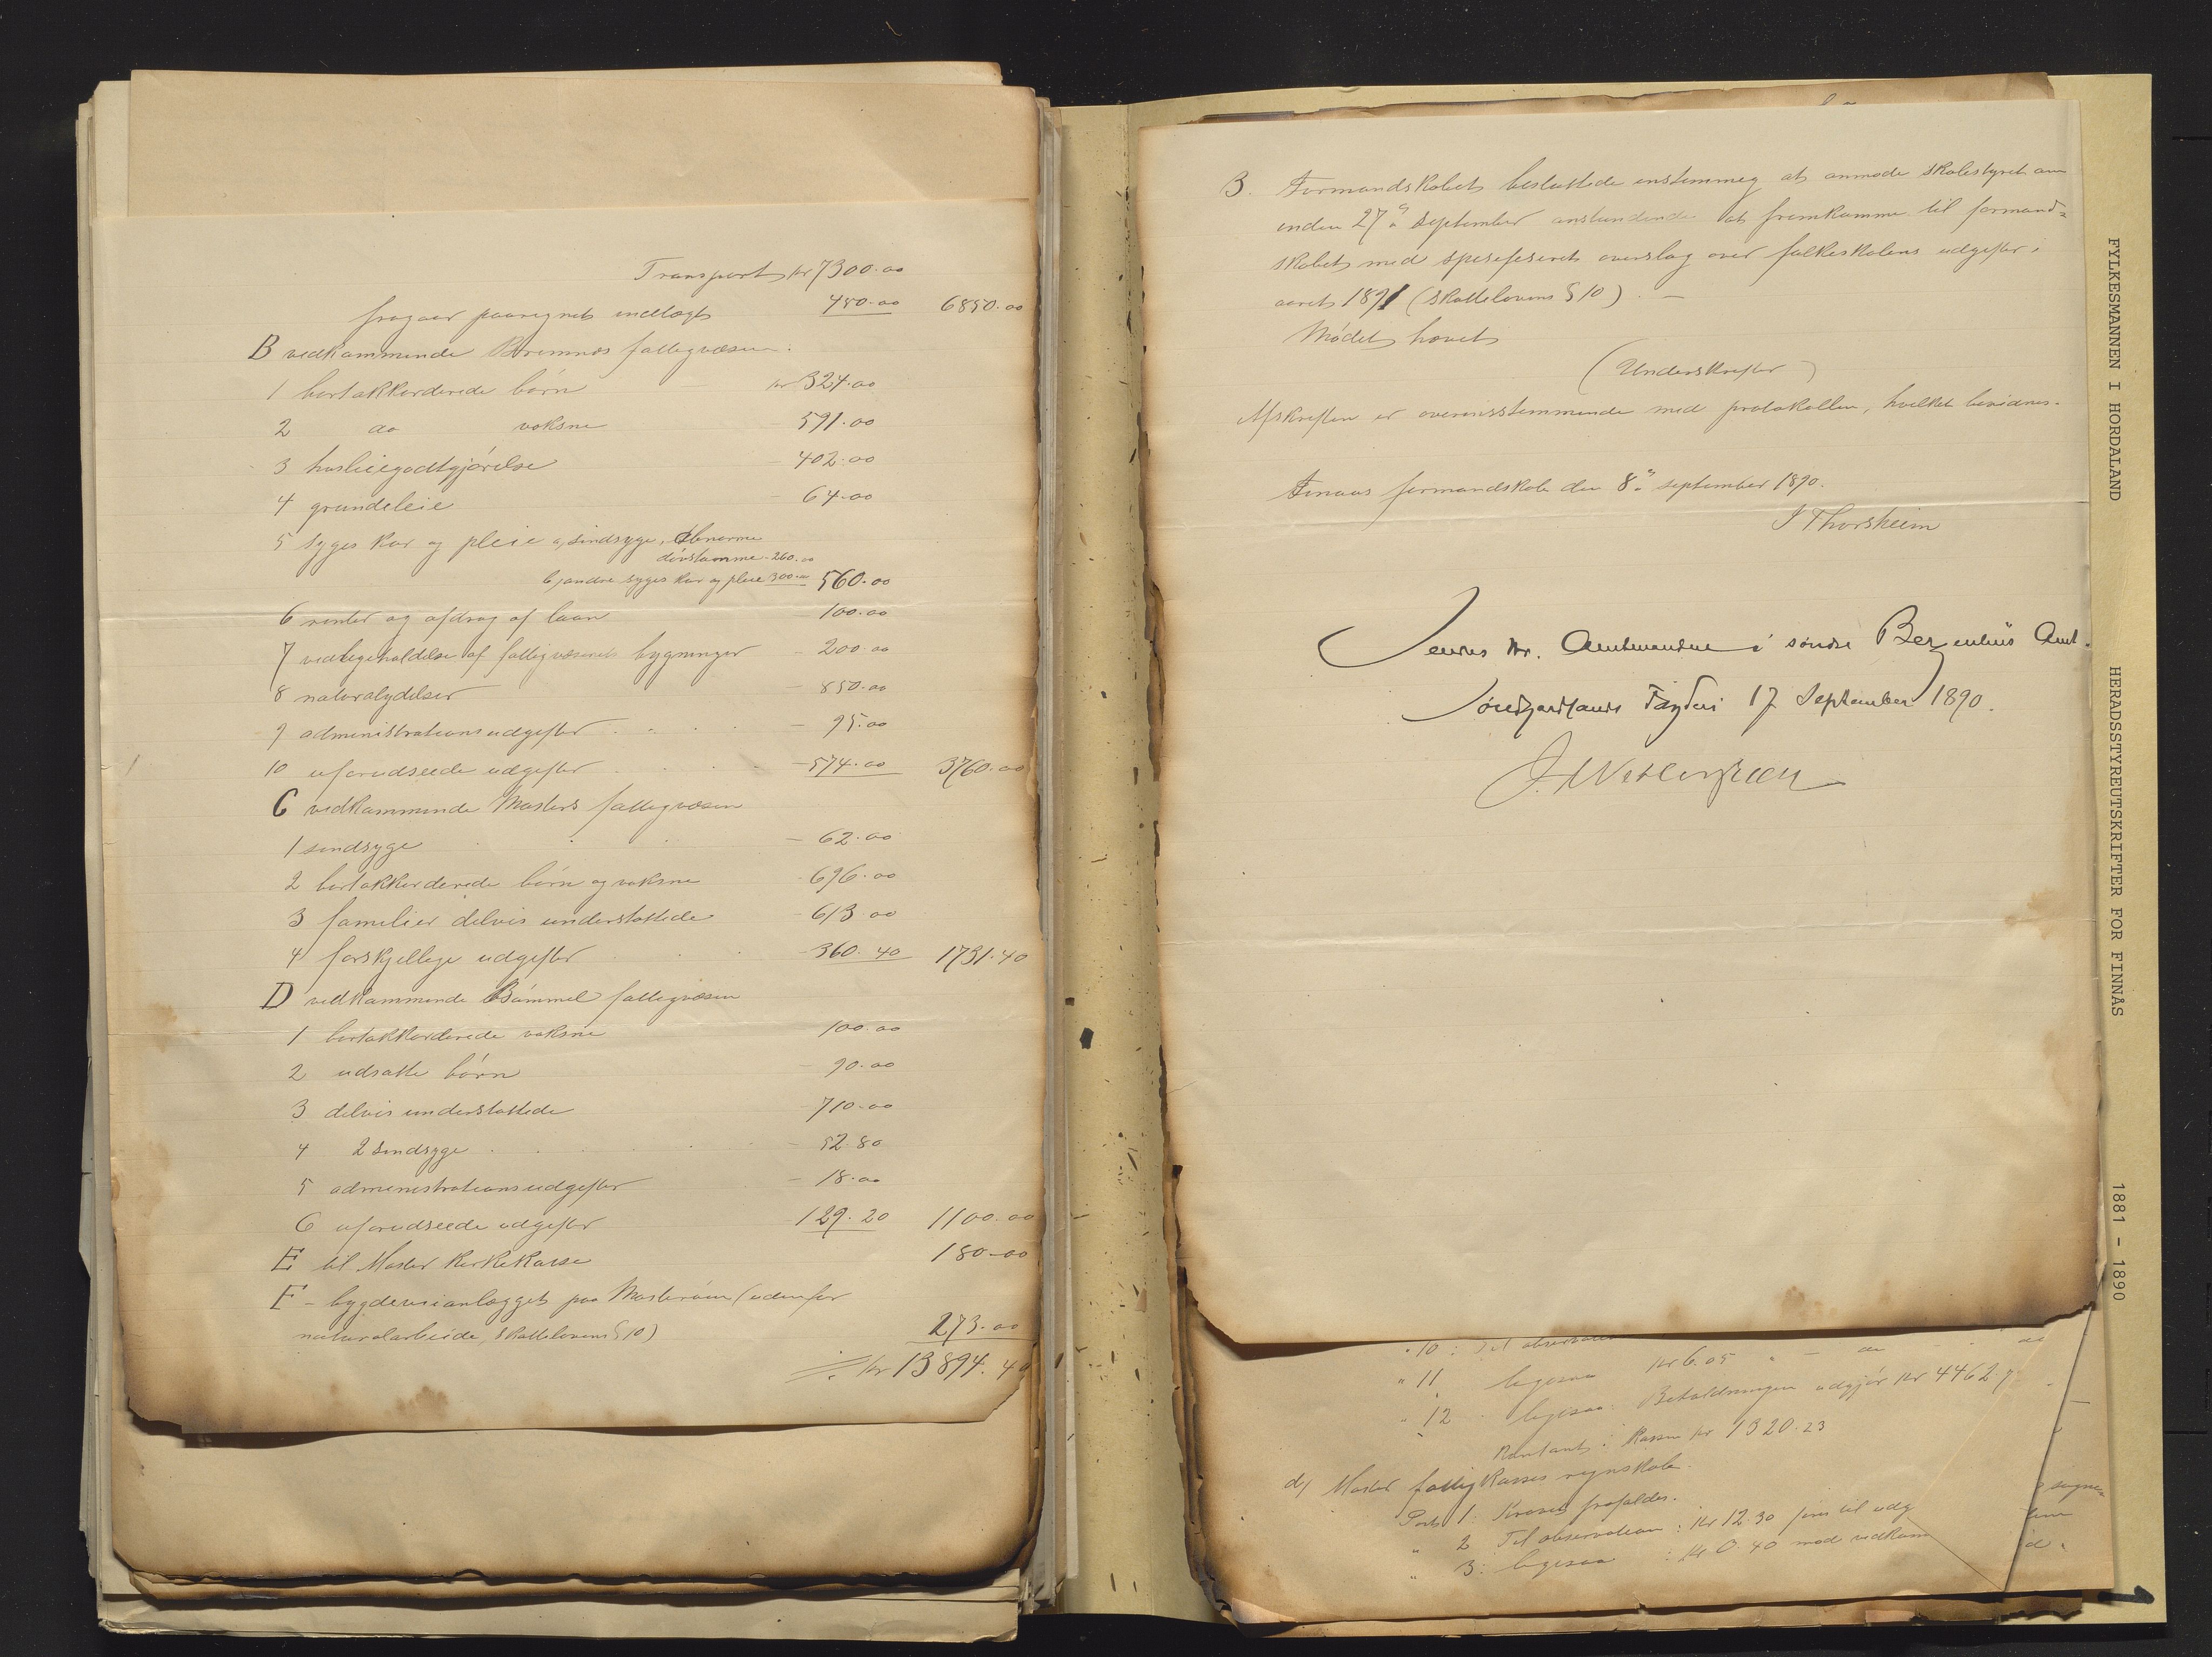 Transport kr 7300.00
fragaar paaregnet indlagt 450.00 6850.00
B vedkommende Bremnæs fattigvæsen:
1 bortakkorderede børn kr 324.00
2 do voksne 591.00
3 husleiegodtgjørelse - 402.00
4 grundeleie - 64.00
5 syges kur og pleie a, sindsyge, Abnorme
døvstumme - 260.00
b, andre syges kur og pleie 300.00 560.00
6 renter og afdrag af laan - 100.00
7 vedligeholdelse af fattigvæsenets bygninger - 200.00
8 naturalydelser - 850.00
9 administrationsudgifter - 95.00
10 uforudseede udgifter - 574.00 3760.00
C vedkommende Mosters fattigvæsen
1 sindsyge - 62.00
2 bortakkorderede børn og voksne - 696.00
3 familier delvis understøttede - 613.00
4 forskjellige udgifter - 360.40 1731.40
D vedkommende Bømmel fattigvæsen
1 bortakkorderede voksne 100.00
2 udsatte børn - 90.00
3 delvis understøttede - 710.00
4 2 sindsyge - 52.80
5 administrationsudgifter - 18.00
6 uforudseede udgifter - 129.20 1100.00
E til Moster Kirkekasse 180.00
F - bygdeveianlægget paa Mosterøen (udenfor
naturalarbeide, skattelovens § 10) 273.00
kr 13894.40
3. Formandskabet besluttede enstemmig at anmode skolestyret om
inden 27de september anstundende at fremkomme til formand=
skabet med speseficeret overslag over folkeskolens udgifter i
aaret 1891 (skattelovens § 10). —
Mødet hævet
(Underskrifter)
Afskriften er overensstemmende med protokollen, hvilket bevidnes.
Finaas formandskab den 8de september 1890.
J Thorsheim
Sendes Hr. Amtmanden i søndre Bergenhus Amt.
Søndhordlands Fogderi 17 September 1890.
10: Til observation
" 11 ligesaa Kr 6.05 " — do
" 12 ligesaa: Betaldningen udgjør kr 4462.7
Kontant i Kassen kr 1320.23
d) Moster fattigkasses regnskab.
Post 1: Kravet frafaldes.
" 2 Til observation: Kr 12.30 føres til udg
" 3: ligesaa : Kr 0.40 mod vedkom
FYLKESMANNEN I HORDALAND
HERADSSTYREUTSKRIFTER FOR FINNÅS
1881 - 1890